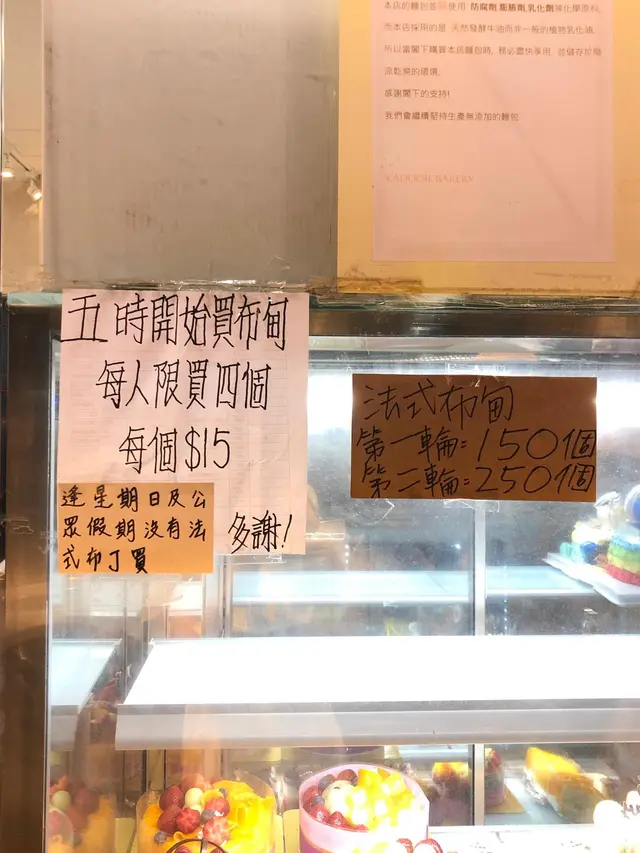 本店的麵包皆不使用 防腐劑,膨脹劑,乳化劑等化學原料,
而本店採用的是 天然發酵牛油而非一般的植物乳化油,
所以當閣下購買本店麵包時, 務必盡快享用, 並儲存於陰
涼乾燥的環境.
感謝閣下的支持!
我們會繼續堅持生產無添加的麵包
BAKERY
五時開始買布甸
每人限買四個
每個$15
多謝!
逢星期日及公
眾假期沒有法
式布丁買
法式布甸
第一輪=150個
第二輪=250個